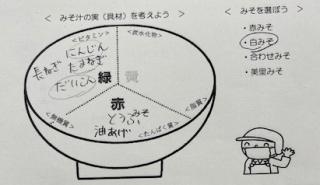 < みそ汁の実（具材）を考えよう >
<ビタミン>
<炭水化物>
長ねぎ
にんじん
たまねぎ
だいこん
緑
黄
赤
とうふ
みそ
油あげ
<無機質>
<たんぱく質>
<脂質>
< みそを選ぼう >
・赤みそ
・白みそ
・合わせみそ
・美里みそ